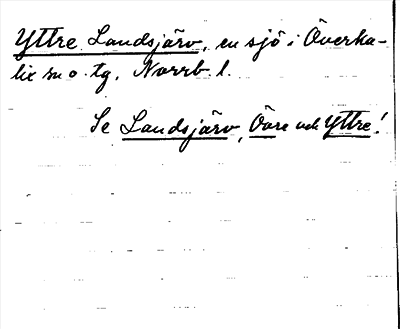 Yttre Landsjärv, en sjö i Överka-
lix sn o. tg, Norrb. l.
Se Landsjärv, Övre och Yttre!